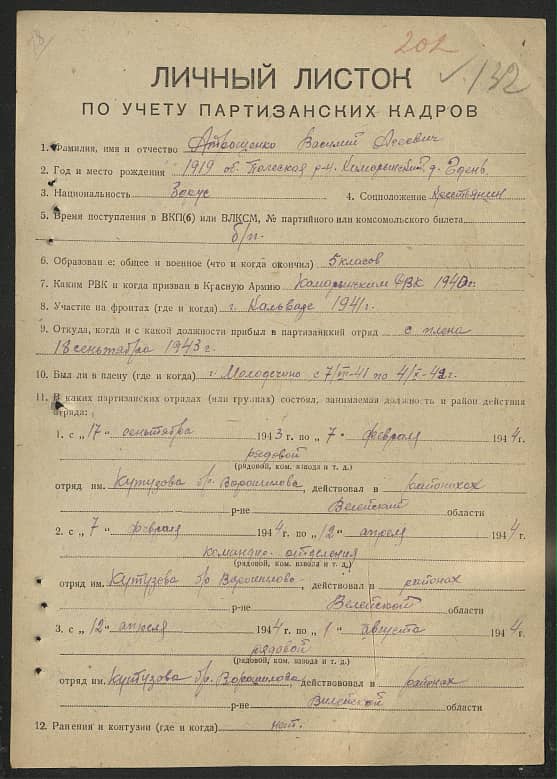 202
132
ЛИЧНЫЙ ЛИСТОК
ПО УЧЕТУ ПАРТИЗАНСКИХ КАДРОВ
1. Фамилия, имя и отчество Василий
2. Год и место рождения 1919 об. Полеская р-н. д. Гдень
3. Национальность 4. Соцположение Крестьянин
5. Время поступления в ВКП(б) или ВЛКСМ, № партийного или комсомольского билета
б/п.
6. Образование: общее и военное (что и когда окончил) 5 класов
7. Каким РВК и когда призван в Красную Армию РВК 1940г.
8. Участие на фронтах (где и когда) г. Кальвария 1941г.
9. Откуда, когда и с какой должности прибыл в партизанский отряд с плена
18 сеньтября 1943 г.
10. Был ли в плену (где и когда) г. Молодечино с 7/ -41 по 4/ -42г.
11. В каких партизанских отрядах (или группах) состоял, занимаемая должность и район действия
отряда:
1. с „17" сеньтября 1943 г. по „7" февраля 1944 г.
рядовой
(рядовой, ком. взвода и т. д.)
отряд им. Кутузова бр. Ворошилова, действовал в районах
р-не Велейской области
2. с „7" февраля 1944 г. по „12" апреля 1944 г.
командир отделения
(рядовой, ком. взвода и т. д.)
отряд им. Кутузова бр Ворошилова, действовал в районах
р-не Велейской области
3. с „12" апреля 1944 г. по „1" августа 1944 г.
рядовой
(рядовой, ком. взвода и т. д.)
отряд им. Кутузова бр. Ворошилова, действовал в районах
р-не Вилейской области
12. Ранения и контузии (где и когда) нет.